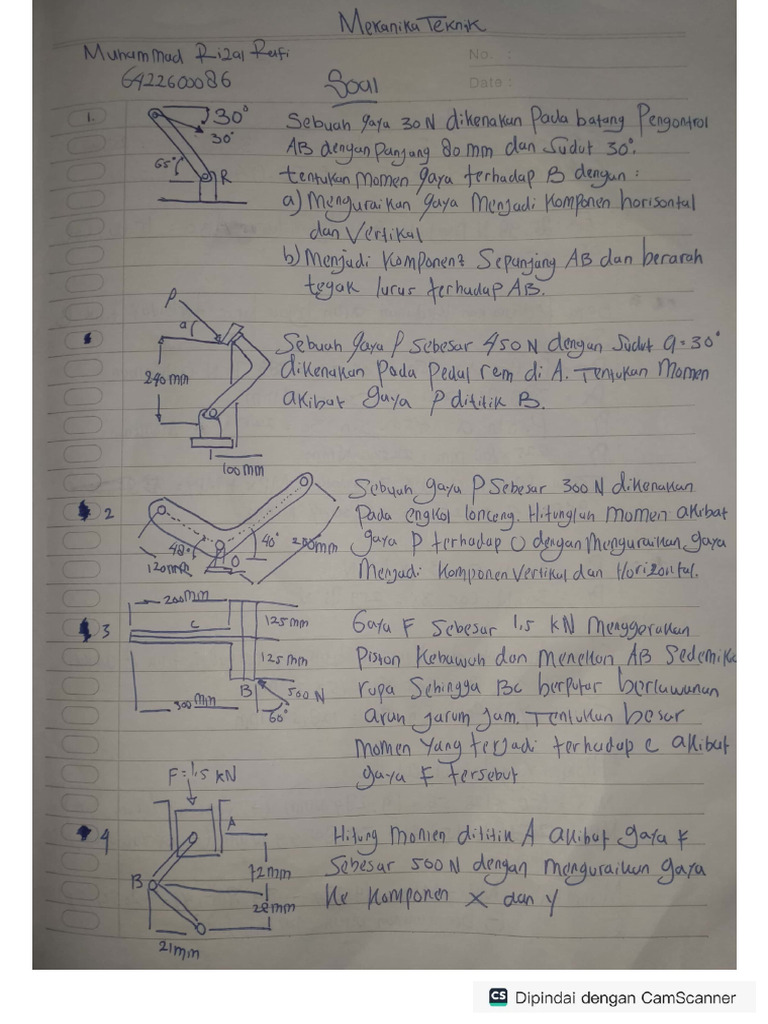 Mekanika Teknik
Muhammad Rizal Rafi
No. :
6422600086
Soal
Date :
1.
30°
30°
65°
R
Sebuah gaya 30 N dikenakan Pada batang Pengontrol
AB dengan Panjang 80 mm dan Sudut 30°.
tentukan Momen gaya terhadap B dengan :
a) Menguraikan gaya Menjadi Komponen horisontal
dan Vertikal
b) Menjadi Komponen² Sepanjang AB dan berarah
tegak lurus terhadap AB.
P
a
240 mm
100 mm
Sebuah gaya P Sebesar 450 N dengan Sudut a = 30°
dikenakan Pada Pedal rem di A. Tentukan Momen
akibat gaya P dititik B.
2
40°
40°
200mm
120mm
O
Sebuah gaya P Sebesar 300 N dikenakan
Pada engkol lonceng. Hitunglah Momen akibat
gaya P terhadap O dengan Menguraikan gaya
Menjadi Komponen Vertikal dan Horizontal.
3
200mm
C
125 mm
125 mm
B
500 N
300 mm
60°
Gaya F Sebesar 1,5 kN Menggerakan
Piston Kebawah dan Menekan AB Sedemika
rupa Sehingga BC berputar berlawanan
arah jarum jam. Tentukan besar
Momen Yang terjadi terhadap C akibat
gaya F Tersebut
4
F = 1,5 kN
A
72mm
B
28mm
21mm
Hitung Momen dititik A akibat gaya F
Sebesar 500 N dengan menguraikan gaya
Ke Komponen X dan Y
CS Dipindai dengan CamScanner